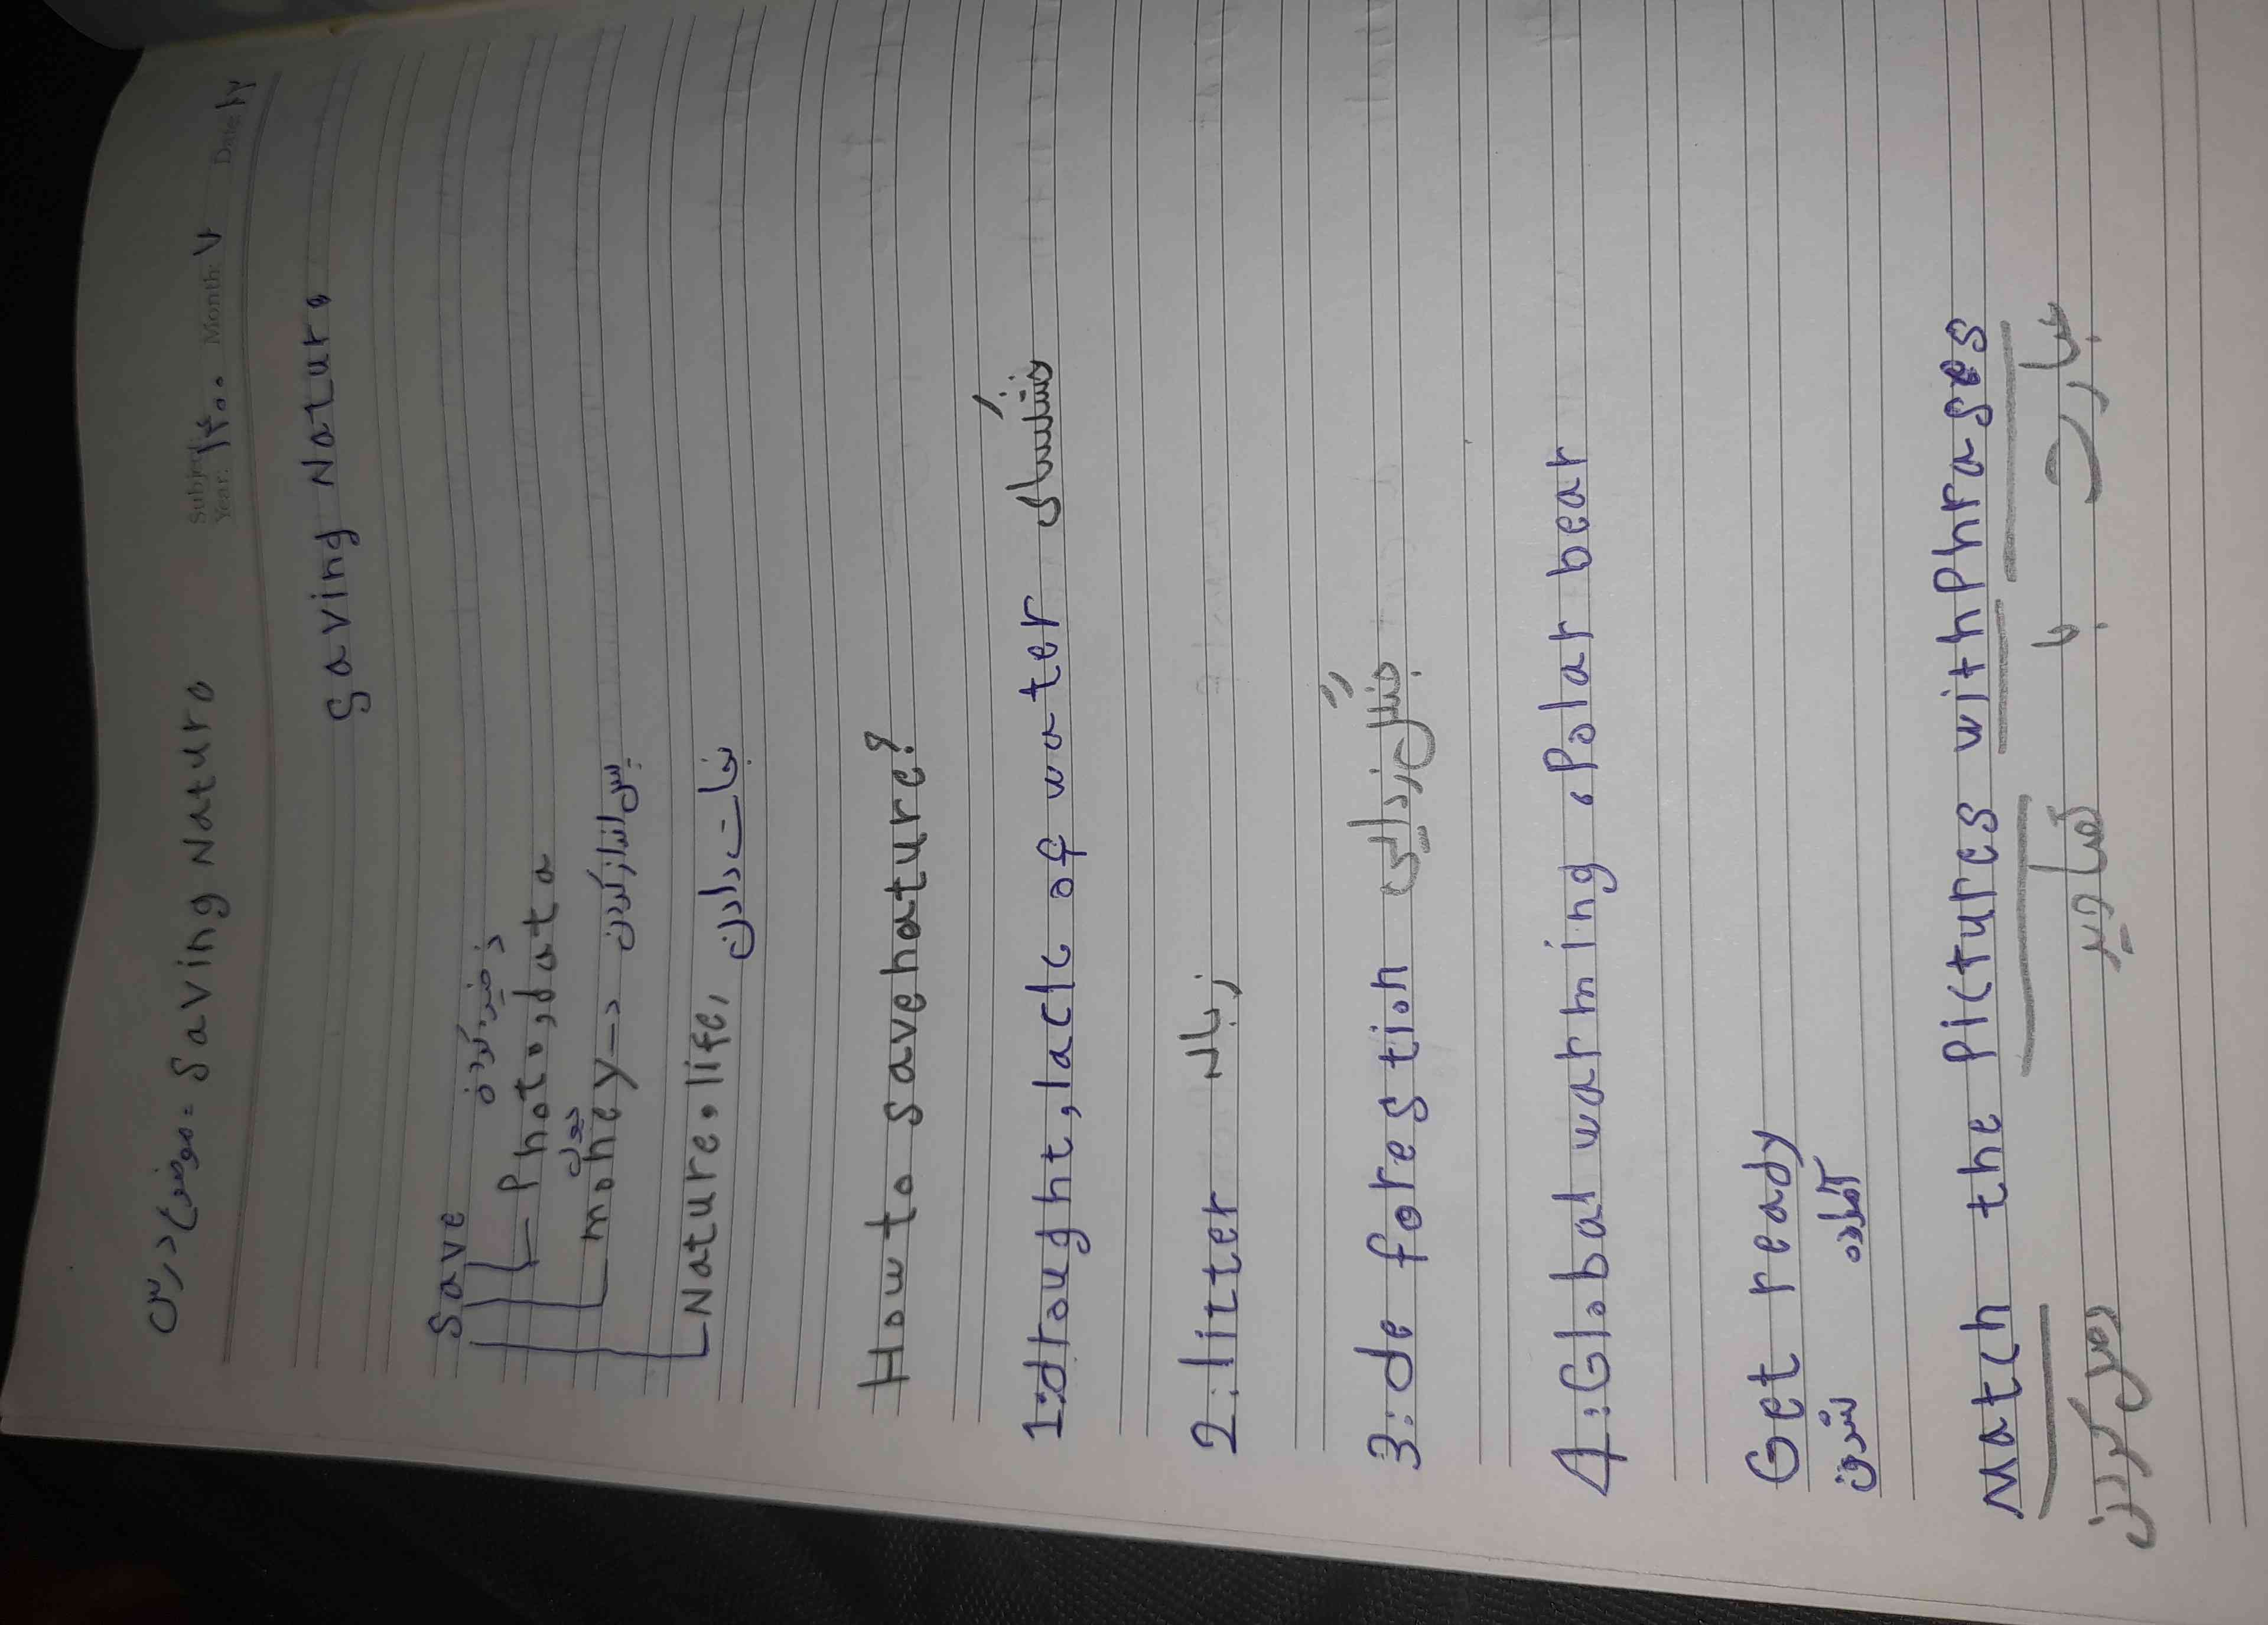 درس) موضوع = Saving Nature
Subject:
Year: ۱۴۰۰ Month: ۷ Date: ۲۷
Saving Nature
Save
ذخیره کردن
Photo, data
پول
money → پس انداز کردن
Nature. life, نجات دادن
How to save nature?
1: drought, lack of water خشکسالی
2: litter زباله
3: de forestion جنگل زدایی
4: Global warming, Polar bear
Get ready
شدن آماده
Match the Pictures with Phrases
وصل کردن تصاویر با عبارت